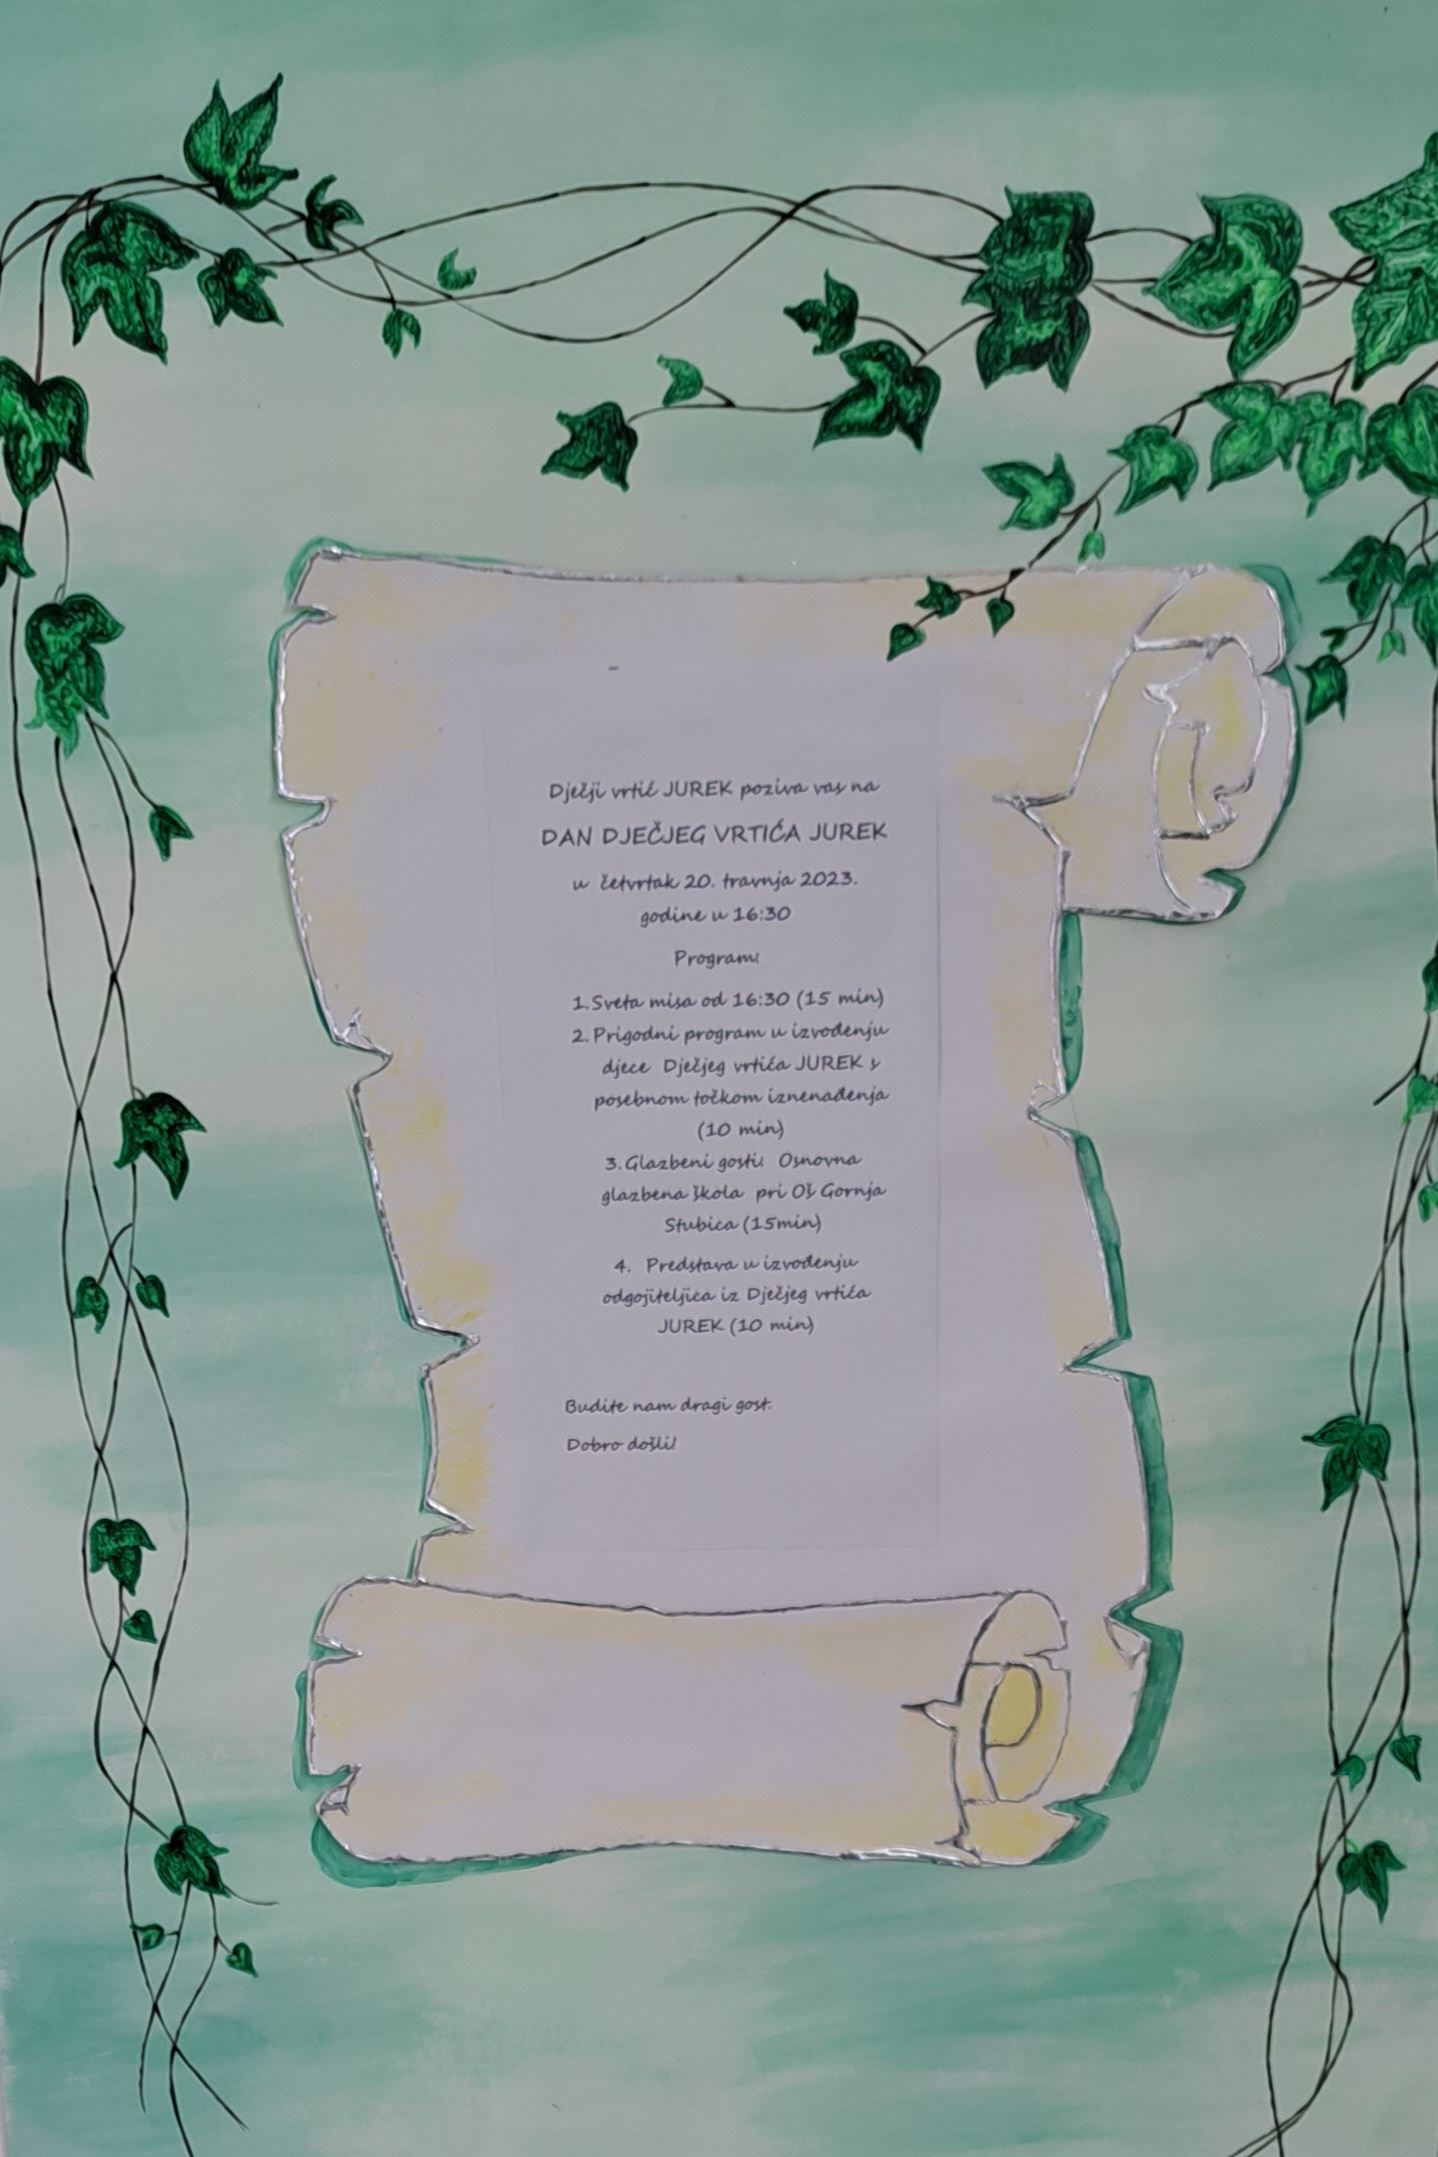 Dječji vrtić JUREK poziva vas na
DAN DJEČJEG VRTIĆA JUREK
u četvrtak 20. travnja 2023.
godine u 16:30
Program:
1. Sveta misa od 16:30 (15 min)
2. Prigodni program u izvođenju
djece Dječjeg vrtića JUREK s
posebnom točkom iznenađenja
(10 min)
3. Glazbeni gosti: Osnovna
glazbena škola pri Oš Gornja
Stubica (15min)
4. Predstava u izvođenju
odgojiteljica iz Dječjeg vrtića
JUREK (10 min)
Budite nam dragi gost.
Dobro došli!